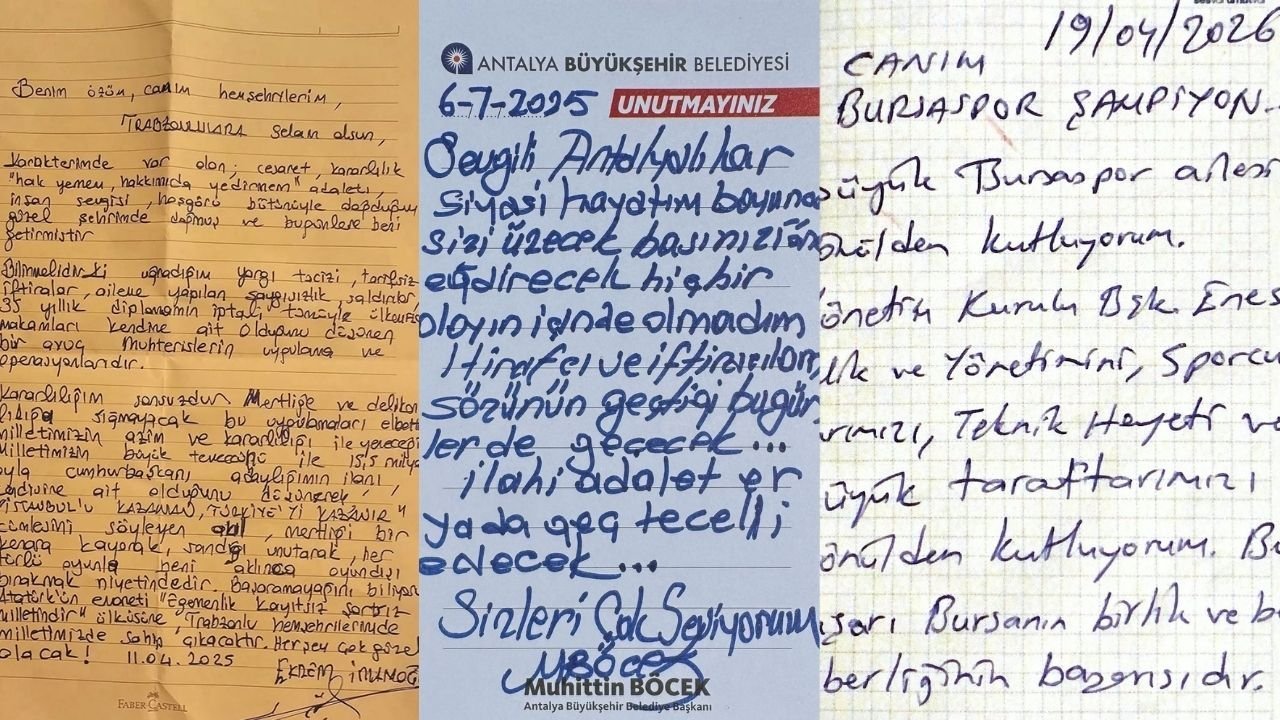 Benim özüm, canım hemşehrilerim,
TRABZONLULARA selam olsun,
Karakterimde var olan; cesaret, kararlılık
"hak yemem, hakkımıda yedirmem" adaleti,
insan sevgisi, hoşgörü bütünüyle doğduğum
güzel şehirimde doğmuş ve bugünlere beni
getirmiştir
Bilinmelidir ki uğradığım yargı tacizi, tarifsiz
iftiralar, aileme yapılan saygısızlık, saldırılar,
35 yıllık diplomamın iptali tümüyle ülkemizin
makamları kendine ait olduğunu düşünen
bir avuç Muhterislerin uygulama ve
operasyonlarıdır.
Kararlılığım sonsuzdur. Mertliğe ve delikan
lılığa sığmayacak bu uygulamaları elbette
milletimizin azim ve kararlılığı ile yeneceğiz
milletimizin büyük teveccühü ile 15,5 milyon
oyla cumhurbaşkanı adaylığımın ilanı,
kendisine ait olduğunu düşünerek,
"İSTANBUL'U KAZANAN, TÜRKİYE'Yİ KAZANIR"
cümlesini söyleyen akıl, mertliği bir
kenara koyarak, sandığı unutarak, her
türlü oyunla beni aklınca oyundışı
bırakmak niyetindedir. Başaramayacağını biliyorum
Atatürk'ün emaneti "Egemenlik kayıtsız şartsız
milletindir" ülküsüne, Trabzonlu hemşehrilerimde
milletimizde sahip çıkacaktır. Herşey çok güzel
olacak! 11.04.2025
EKREM İMAMOĞ
FABER-CASTELL
ANTALYA BÜYÜKŞEHİR BELEDİYESİ
6-7-2025 UNUTMAYINIZ
Sevgili Antalyalılar
siyasi hayatım boyunca
sizi üzecek başınızı ön
eğdirecek hiçbir
olayın içinde olmadım
İtirafçı ve iftiracıların
sözünün geçtiği bugün
lerde geçecek...
ilahi adalet er
yada geç tecelli
edecek...
Sizleri Çok Seviyorum
MBÖCEK
Muhittin BÖCEK
Antalya Büyükşehir Belediye Başkanı
19/04/2026
CANIM
BURSASPOR ŞAMPİYON.
üyük Bursaspor ailesi
önülden kutluyorum.
önetim Kurulu Bşk. Enes
lik ve Yönetimini, Sporcu
rımızı, Teknik Heyeti ve
üyük taraftarımızı
önülden kutluyorum. Bu
şarı Bursanın birlik ve b
berliğinin başarısıdır.